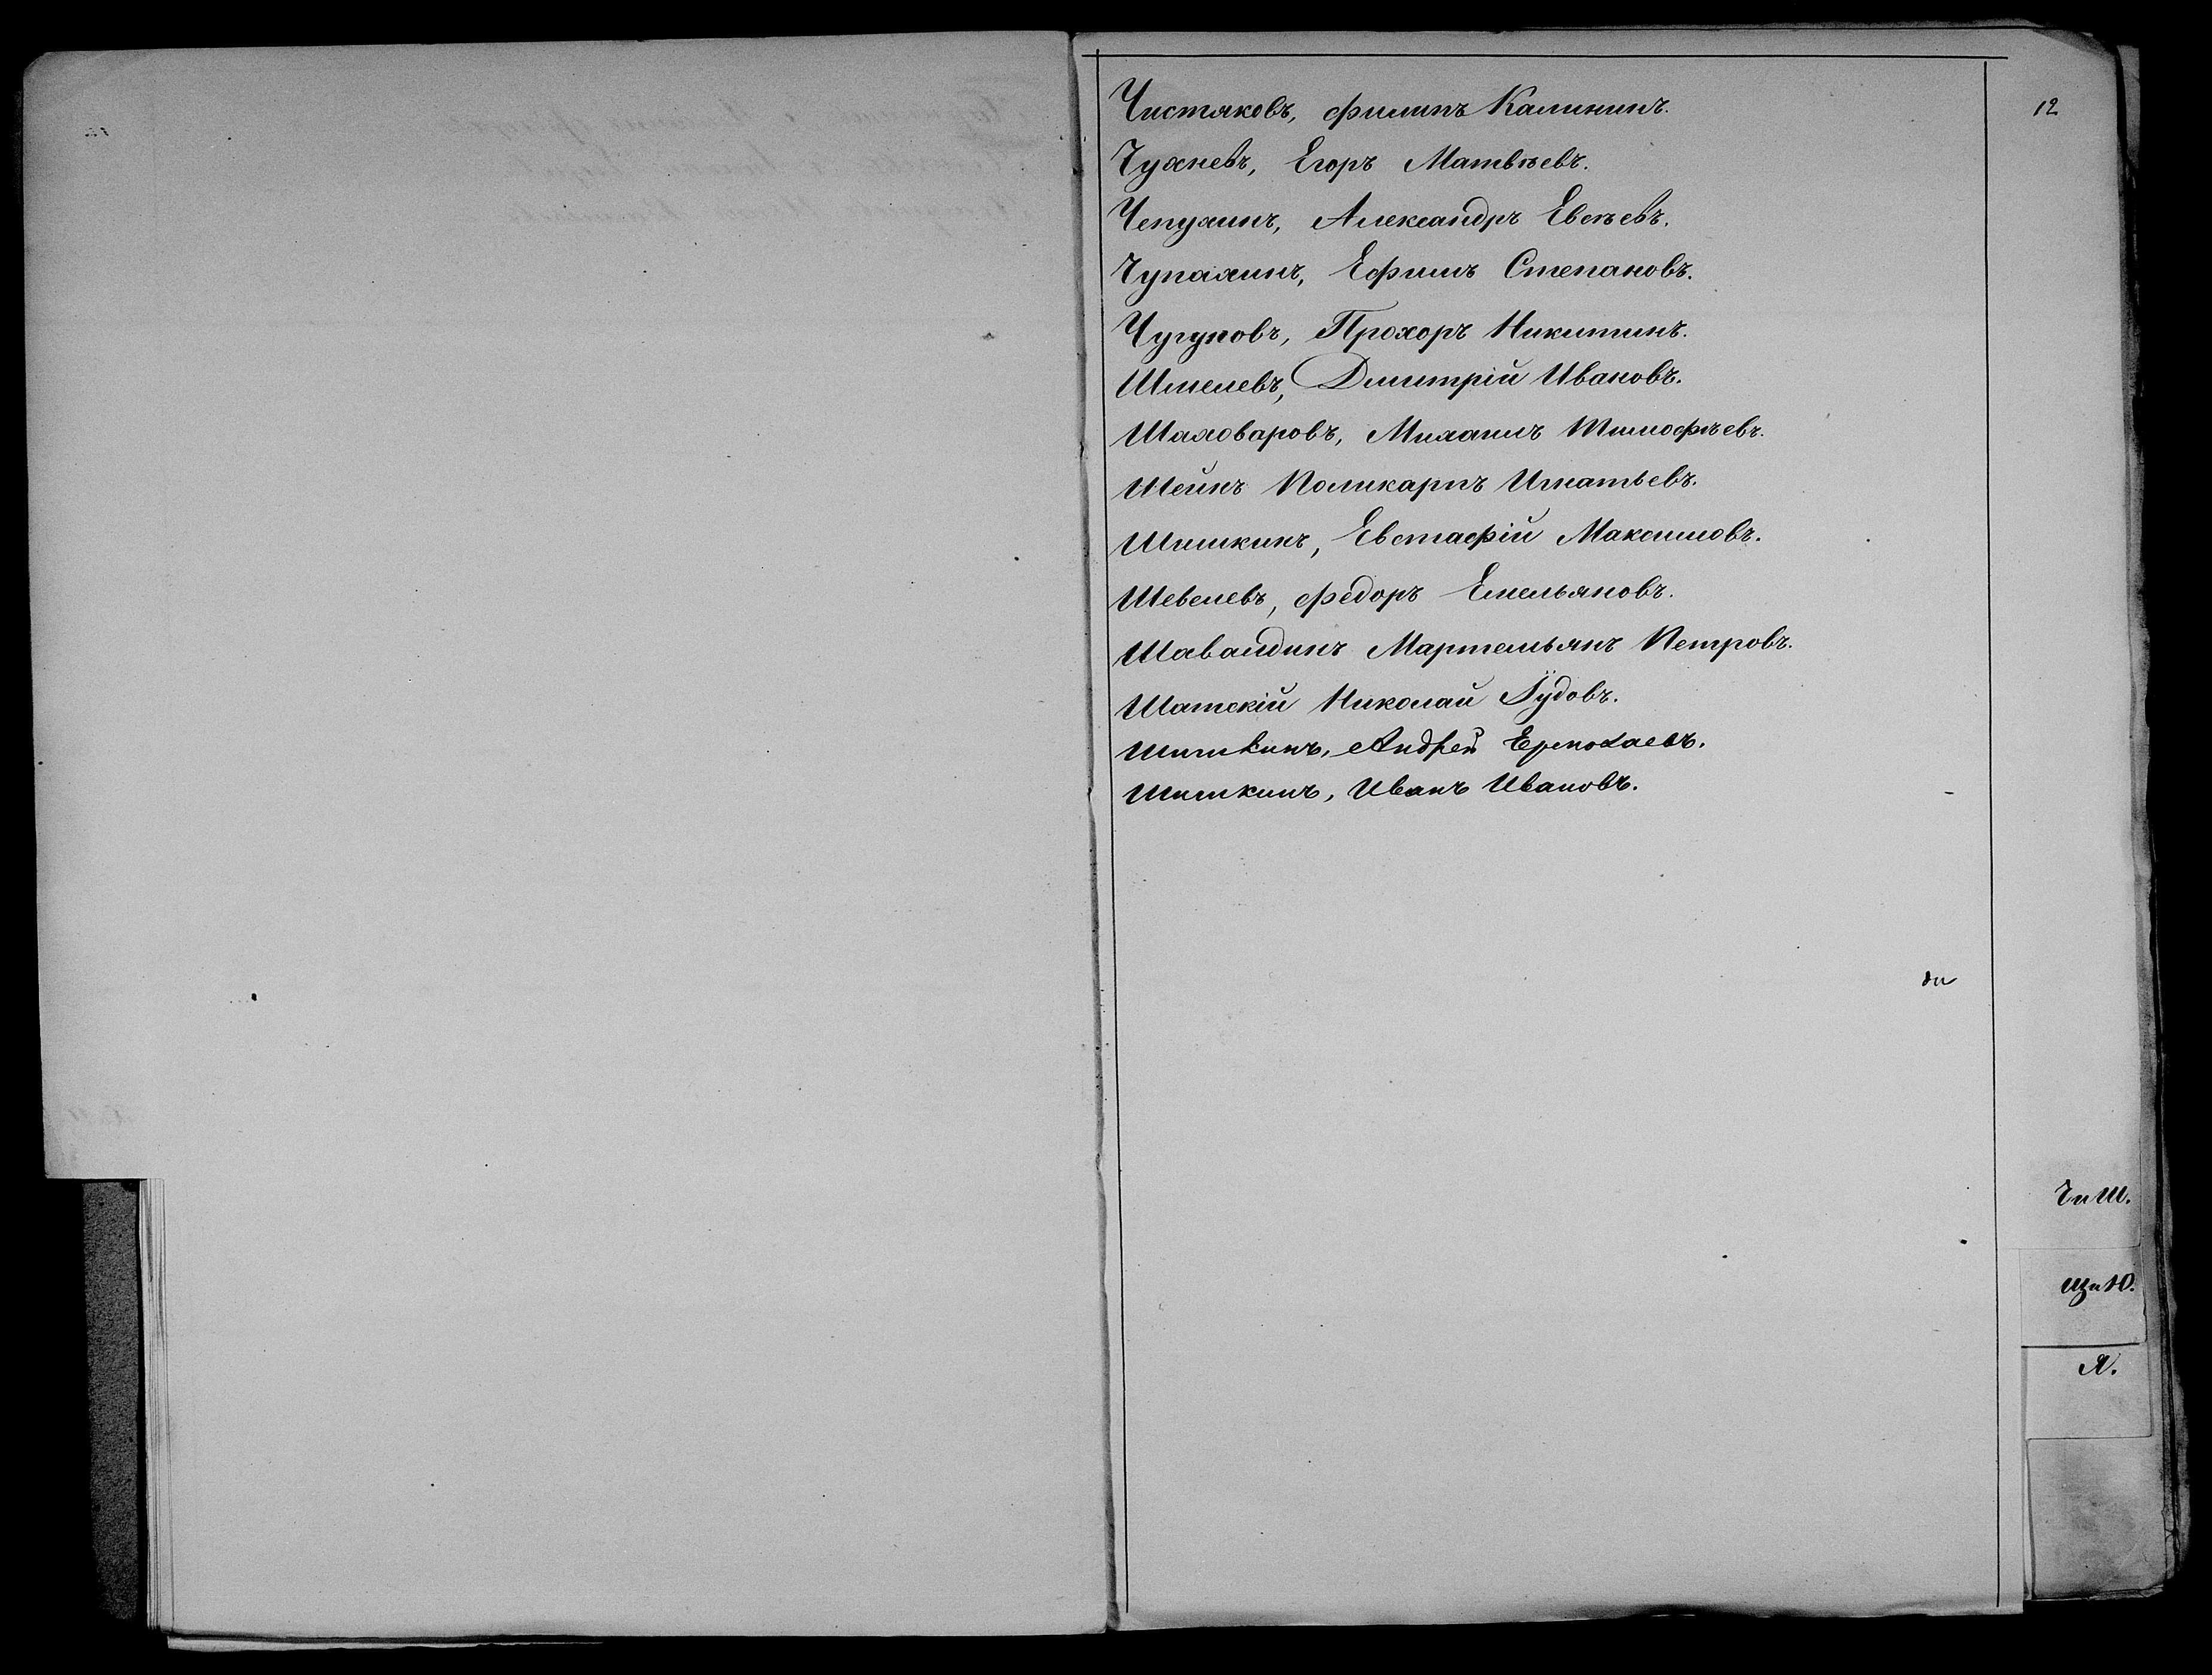 12
Чистяковъ, Филипъ Калининъ.
Чухневъ, Егоръ Матвѣевъ.
Чепухинъ, Александръ Евсѣевъ.
Чупахинъ, Ефимъ Степановъ.
Чугуновъ, Прохоръ Никитинъ.
Шмелевъ, Дмитрій Ивановъ.
Шаховаровъ, Михаилъ Тимофѣевъ.
Шеинъ Поликарпъ Игнатьевъ.
Шишкинъ, Евстафій Максимовъ.
Шевелевъ, Федоръ Емельяновъ.
Шавалдинъ Мартемьянъ Петровъ.
Шатскій Николай Іудовъ.
Шишкинъ, Андрей Ермолаевъ.
Шишкинъ, Иванъ Ивановъ.
Ч и Ш.
Щ и Ю.
Я.